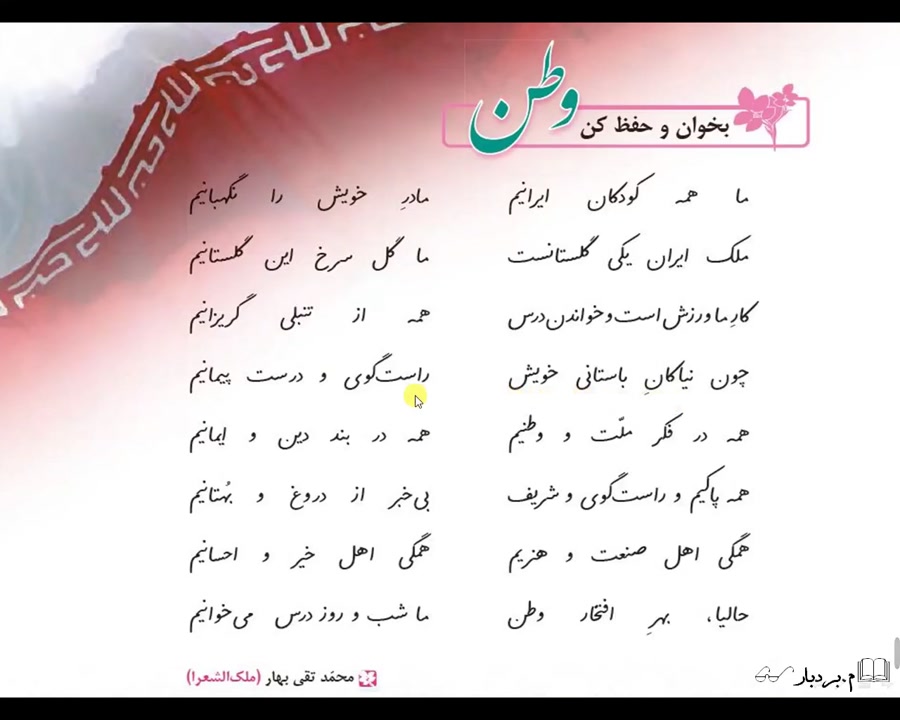 وطن
بخوان و حفظ کن
ما همه کودکان ایرانیم مادرِ خویش را نگهبانیم
ملک ایران یکی گلستانست ما گل سرخ این گلستانیم
کارِ ما ورزش است و خواندن درس همه از تنبلی گریزانیم
چون نیاکانِ باستانی خویش راست‌گوی و درست پیمانیم
همه در فکر ملّت و وطنیم همه در بند دین و ایمانیم
همه پاکیم و راست‌گوی و شریف بی‌خبر از دروغ و بُهتانیم
همگی اهل صنعت و هنریم همگی اهل خیر و احسانیم
حالیا، بهرِ افتخار وطن ما شب و روز درس می‌خوانیم
محمّد تقی بهار (ملک‌الشعرا)
م.بردبار